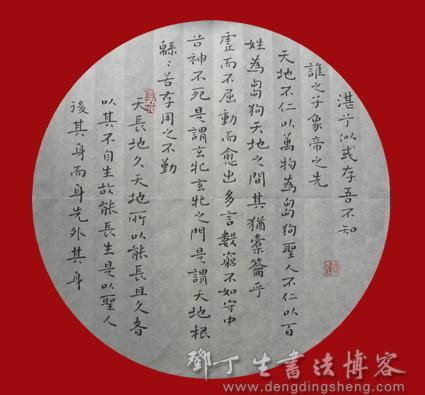 湛兮似或存吾不知
誰之子象帝之先
天地不仁以萬物為芻狗聖人不仁以百
姓為芻狗天地之間其猶橐籥乎
虛而不屈動而愈出多言數窮不如守中
谷神不死是謂玄牝玄牝之門是謂天地根
緜〻若存用之不勤
天長地久天地所以能長且久者
以其不自生故能長生是以聖人
後其身而身先外其身
鄧丁生書法博客
www.dengdingsheng.com